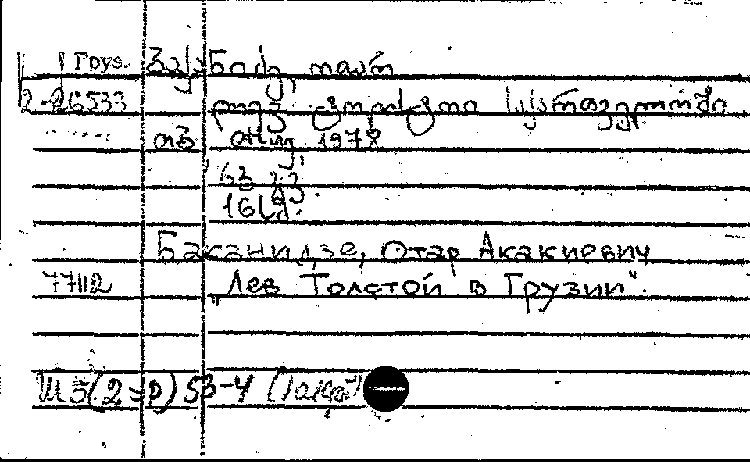 Груз. ოთარ
2-26533 ლევ ტოლსტოი საქართველოში
თბ 1978
63 გვ
16 სმ.
Баканидзе, Отар Акакиевич
77112 „Лев Толстой в Грузии“.
Ш5(2=Р)53-4